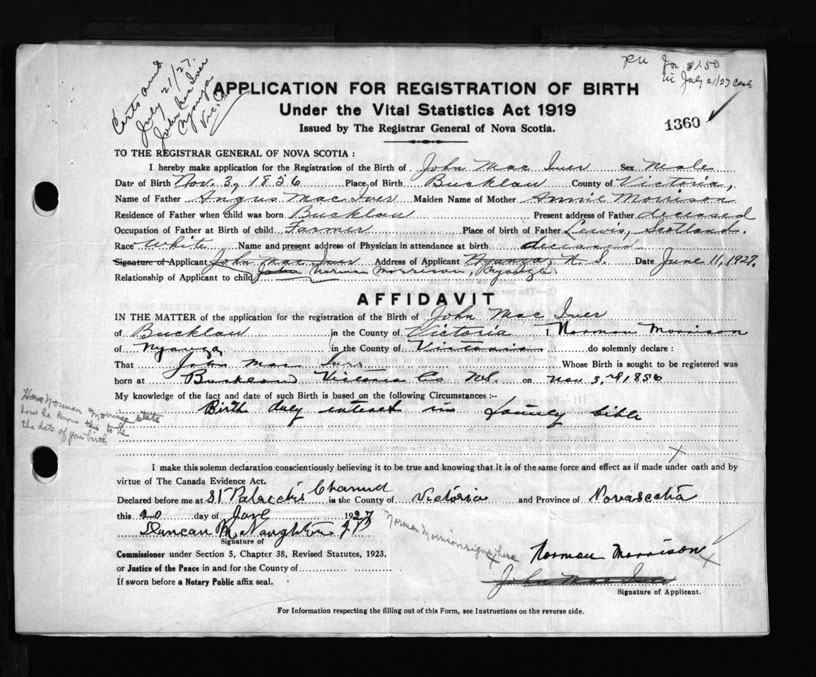 Certs and
July 21/27.
John Mac Iver
Nyanza
Vic Co
$1.50
in July 21/27 Cash
1360
APPLICATION FOR REGISTRATION OF BIRTH
Under the Vital Statistics Act 1919
Issued by The Registrar General of Nova Scotia.
TO THE REGISTRAR GENERAL OF NOVA SCOTIA :
I hereby make application for the Registration of the Birth of John Mac Iver Sex Male
Date of Birth Nov. 3, 1856 Place of Birth Bucklaw County of Victoria,
Name of Father Angus Mac Iver Maiden Name of Mother Annie Morrison
Residence of Father when child was born Bucklaw Present address of Father deceased
Occupation of Father at Birth of child Farmer Place of birth of Father Lewis, Scotland.
Race White Name and present address of Physician in attendance at birth deceased
Signature of Applicant John Mac Iver Address of Applicant Nyanza, N. S. Date June 11, 1927.
Relationship of Applicant to child John Norman Morrison, Nyanza
AFFIDAVIT
IN THE MATTER of the application for the registration of the Birth of John Mac Iver
of Bucklaw in the County of Victoria I, Norman Morrison
of Nyanza in the County of Victoria do solemnly declare :
That John Mac Iver Whose Birth is sought to be registered was
born at Bucklaw Victoria Co NS. on Nov 3rd 1856
My knowledge of the fact and date of such Birth is based on the following Circumstances :—
Birth duly interest in family bible
Have Norman Morrison state
how he knows this to be
the date of your birth
I make this solemn declaration conscientiously believing it to be true and knowing that it is of the same force and effect as if made under oath and by
virtue of The Canada Evidence Act.
Declared before me at St Patricks Channel in the County of Victoria and Province of Novascotia
this 20 day of June 1927
Duncan McNaughton JP
Signature of
Norman Morrison sign here
Norman Morrison
Commissioner under Section 5, Chapter 38, Revised Statutes, 1923.
or Justice of the Peace in and for the County of
John Mac Iver
If sworn before a Notary Public affix seal.
Signature of Applicant.
For Information respecting the filling out of this Form, see Instructions on the reverse side.